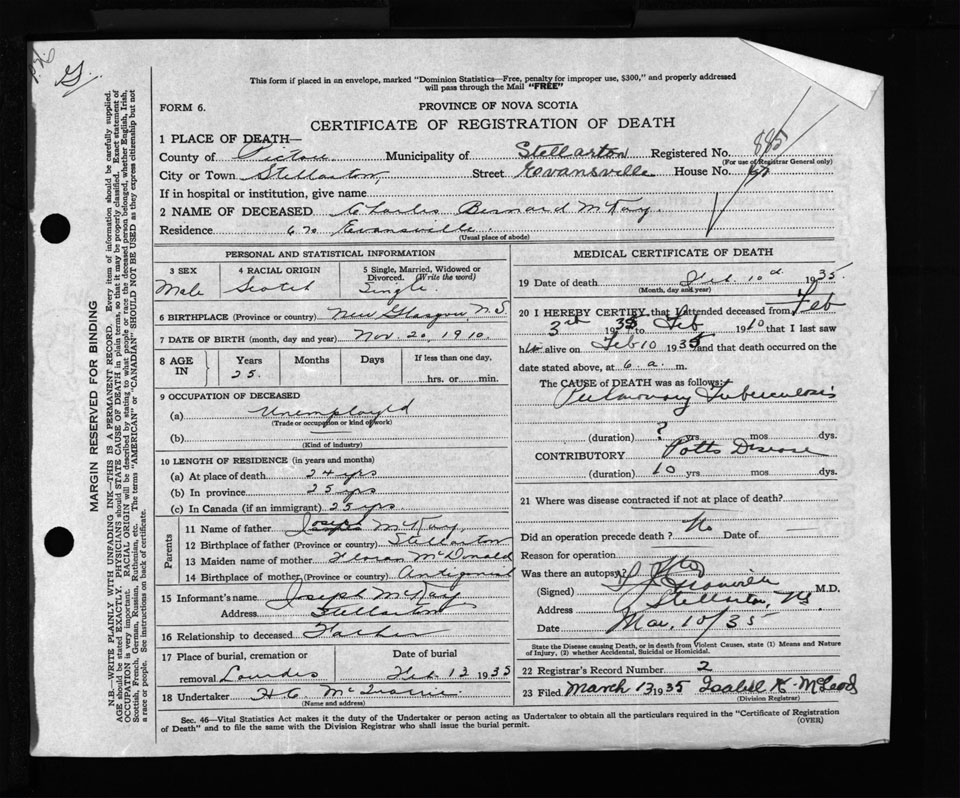 This form if placed in an envelope, marked "Dominion Statistics—Free, penalty for improper use, $300," and properly addressed
will pass through the Mail "FREE"
FORM 6.
PROVINCE OF NOVA SCOTIA
CERTIFICATE OF REGISTRATION OF DEATH
1 PLACE OF DEATH—
County of Pictou Municipality of Stellarton Registered No. 885
(For use of Registrar General only)
City or Town Stellarton, Street Evansville House No.
If in hospital or institution, give name
2 NAME OF DECEASED Charles Bernard McKay.
Residence Evansville.
(Usual place of abode)
PERSONAL AND STATISTICAL INFORMATION
3 SEX 4 RACIAL ORIGIN 5 Single, Married, Widowed or Divorced. (Write the word)
Male Scotch Single.
6 BIRTHPLACE (Province or country) New Glasgow N.S.
7 DATE OF BIRTH (month, day and year) Nov. 20, 1910.
8 AGE IN Years Months Days If less than one day,
25. hrs. or min.
9 OCCUPATION OF DECEASED
(a) Unemployed
(Trade or occupation or kind of work)
(b)
(Kind of industry)
10 LENGTH OF RESIDENCE (in years and months)
(a) At place of death 24 yrs
(b) In province 25 yrs
(c) In Canada (if an immigrant) 25 yrs
Parents
11 Name of father Joseph McKay,
12 Birthplace of father (Province or country) Stellarton
13 Maiden name of mother McDonald
14 Birthplace of mother (Province or country) Antigonish
15 Informant's name Joseph McKay
Address Stellarton
16 Relationship to deceased Father
17 Place of burial, cremation or removal Lourdes Date of burial Feb. 13 1935
18 Undertaker H C
(Name and address)
MEDICAL CERTIFICATE OF DEATH
19 Date of death Feb. 10 1935
(Month, day and year)
20 I HEREBY CERTIFY, that I attended deceased from Feb
3rd 1935 to Feb 1910 that I last saw
him alive on Feb 10 1935 and that death occurred on the
date stated above, at 6 a. m.
The CAUSE OF DEATH was as follows:
Pulmonary Tuberculosis
(duration) ? yrs mos dys.
CONTRIBUTORY Potts Disease
(duration) 10 yrs mos dys.
21 Where was disease contracted if not at place of death?
Did an operation precede death? No Date of
Reason for operation
Was there an autopsy? No
(Signed) M.D.
Address Stellarton, NS
Date Mar. 10/35
State the Disease causing Death, or in death from Violent Causes, state (1) Means and Nature
of Injury, (2) whether Accidental, Suicidal or Homicidal.
22 Registrar's Record Number 2
23 Filed March 13 1935 McLeod
(Division Registrar)
Sec. 46—Vital Statistics Act makes it the duty of the Undertaker or person acting as Undertaker to obtain all the particulars required in the "Certificate of Registration
of Death" and to file the same with the Division Registrar who shall issue the burial permit.
(OVER)
MARGIN RESERVED FOR BINDING
N.B.—WRITE PLAINLY WITH UNFADING INK—THIS IS A PERMANENT RECORD. Every item of information should be carefully supplied.
AGE should be stated EXACTLY. PHYSICIANS should STATE CAUSE OF DEATH in plain terms, so that it may be properly classified. Exact statement of
OCCUPATION is very important. RACIAL ORIGIN will be described by stating to what people or race the deceased person belonged, whether English, Irish,
Scottish, French, German, Russian, Ruthenian, etc. The terms "AMERICAN" or "CANADIAN" SHOULD NOT BE USED as they express citizenship but not
a race or people. See instructions on back of certificate.